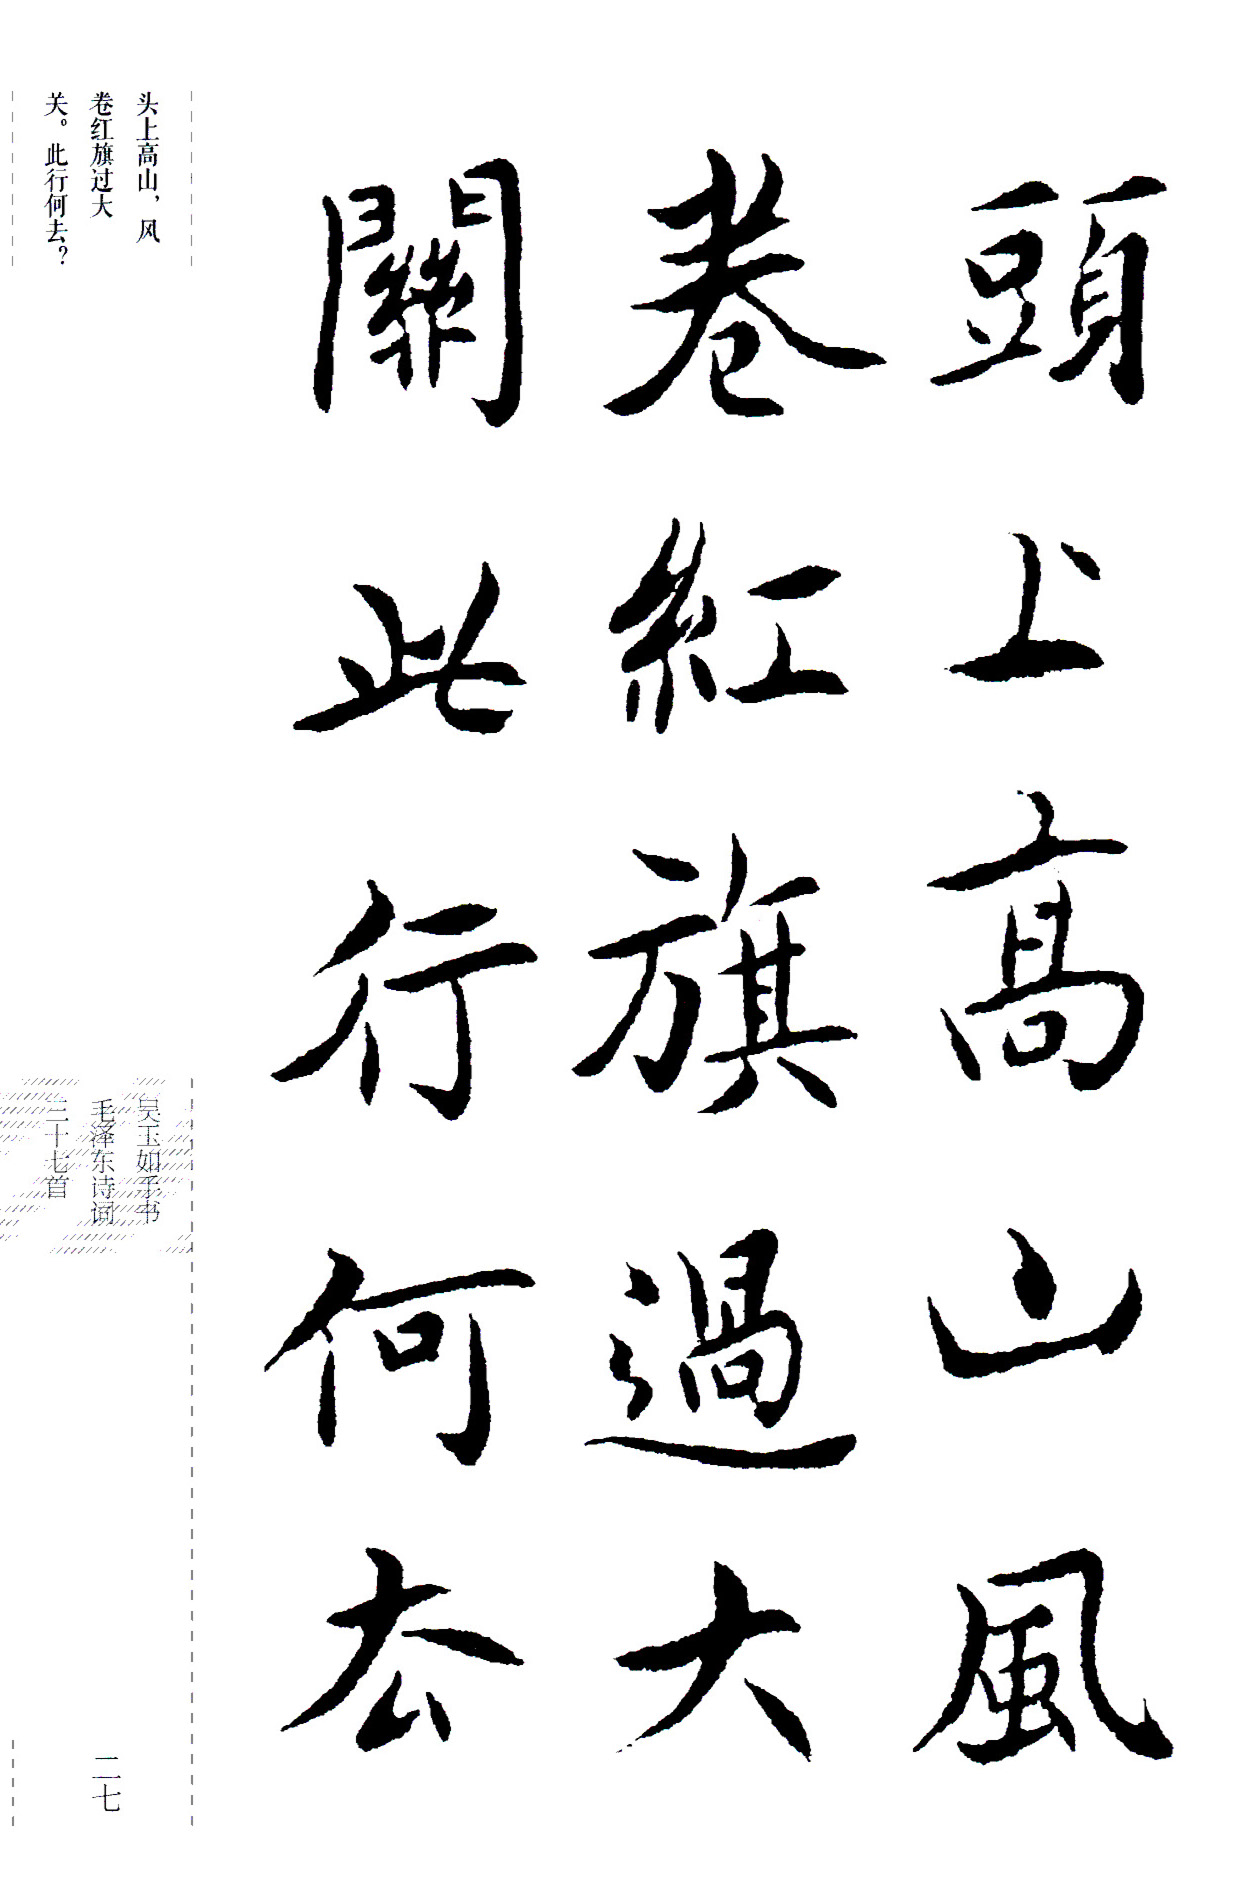 頭上高山風
卷紅旗過大
關此行何去
头上高山，风
卷红旗过大
关。此行何去？
吴玉如手书
毛泽东诗词
三十七首
二七